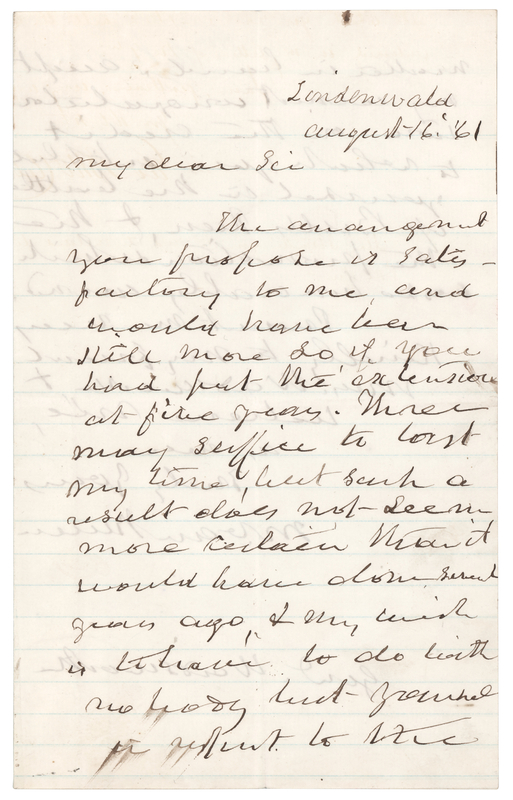 Lindenwald
August 16. '61
My dear Sir
The arrangement
you propose is satis-
factory to me, and
would have been
still more so if you
had put the extension
at five years. Three
may suffice to last
my time, but such a
result does not seem
more certain than it
would have done several
years ago, & my wish
is to have to do with
no body but yourself
in respect to the